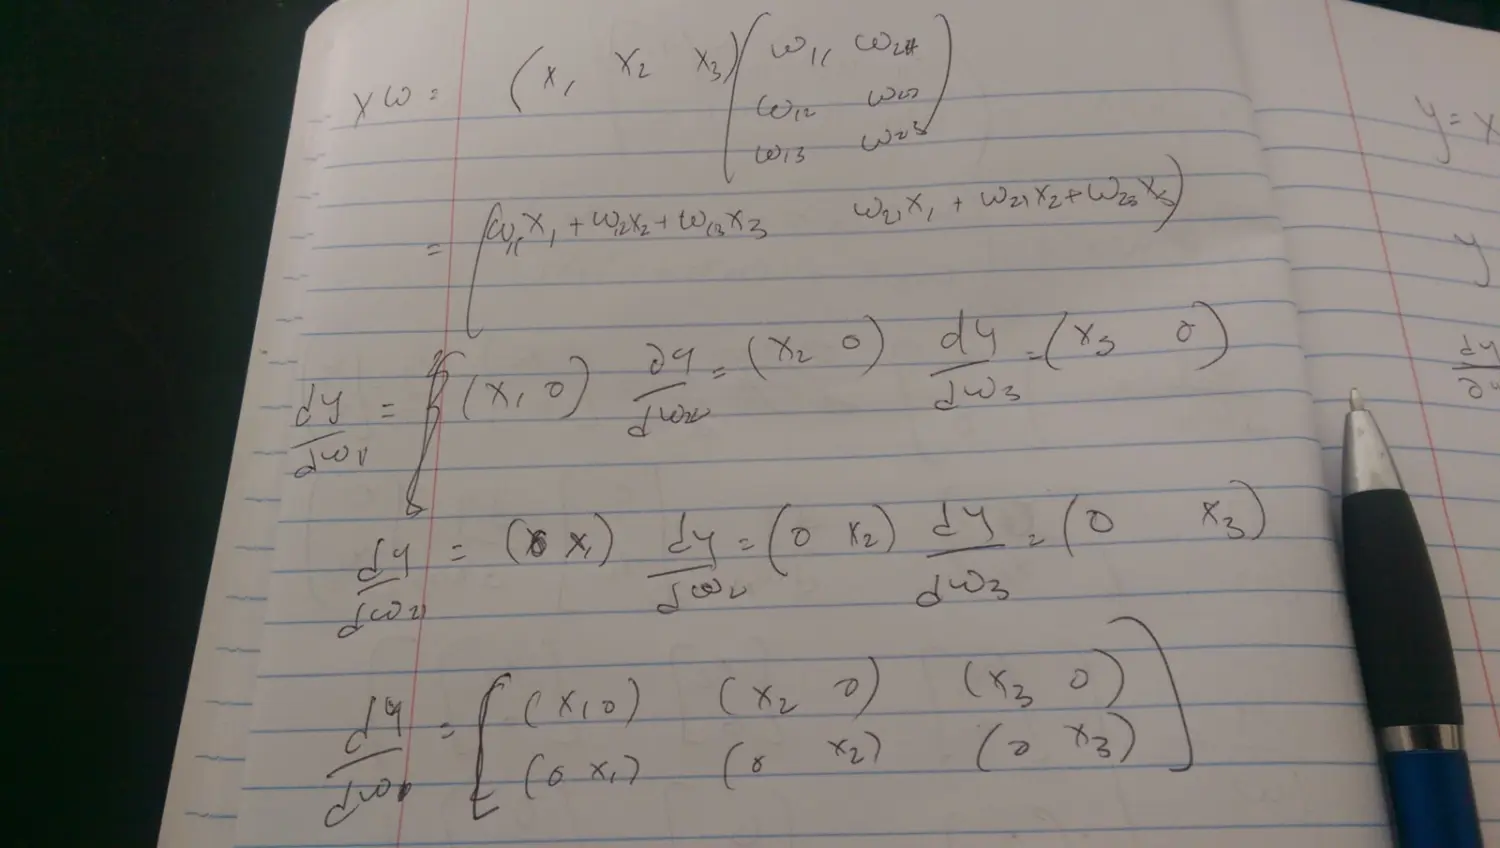 xω = (x₁ x₂ x₃) ( ω₁₁ ω₂₁
ω₁₂ ω₂₂
ω₁₃ ω₂₃ )
= [ω₁₁x₁ + ω₁₂x₂ + ω₁₃x₃ ω₂₁x₁ + ω₂₁x₂ + ω₂₃x₃)
dy/dω₁ = (x₁ 0) ∂y/dω₂ = (x₂ 0) dy/dω₃ = (x₃ 0)
dy/dω₂₁ = (0 x₁) dy/dω₂ = (0 x₂) dy/dω₃ = (0 x₃)
dy/dω = [ (x₁ 0) (x₂ 0) (x₃ 0)
(0 x₁) (0 x₂) (0 x₃) ]
y = x
y
dy/∂